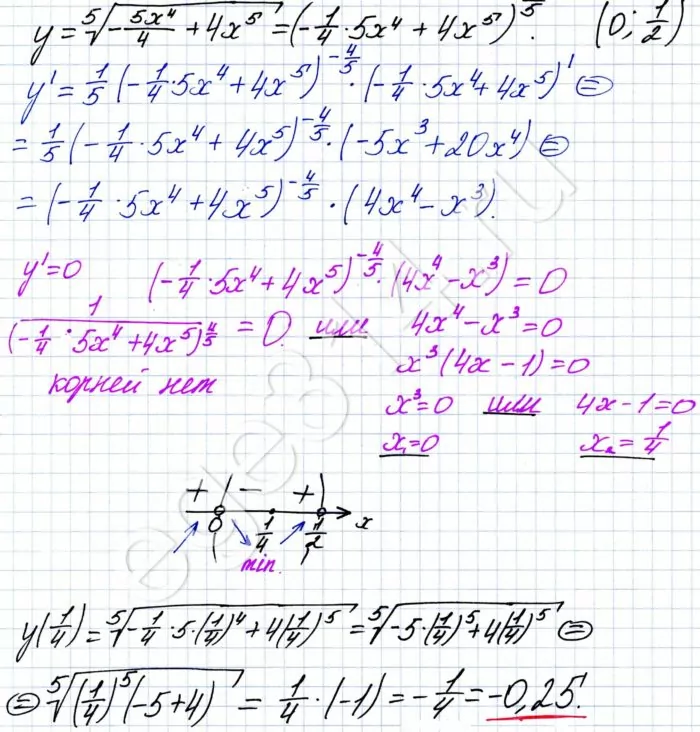 y = ⁵√(-5x⁴/4 + 4x⁵) = (-1/4 · 5x⁴ + 4x⁵)^(1/5). (0; 1/2)
y' = 1/5 (-1/4 · 5x⁴ + 4x⁵)^(-4/5) · (-1/4 · 5x⁴ + 4x⁵)' =
= 1/5 (-1/4 · 5x⁴ + 4x⁵)^(-4/5) · (-5x³ + 20x⁴) =
= (-1/4 · 5x⁴ + 4x⁵)^(-4/5) · (4x⁴ - x³).
y' = 0 (-1/4 · 5x⁴ + 4x⁵)^(-4/5) · (4x⁴ - x³) = 0
1/(-1/4 · 5x⁴ + 4x⁵)^(4/5) = 0. или 4x⁴ - x³ = 0
корней нет x³(4x - 1) = 0
x³ = 0 или 4x - 1 = 0
x₁ = 0 x₂ = 1/4
+ - +
0 1/4 1/2 x
min.
y(1/4) = ⁵√(-1/4 · 5 · (1/4)⁴ + 4(1/4)⁵) = ⁵√(-5 · (1/4)⁵ + 4(1/4)⁵) =
= ⁵√((1/4)⁵(-5 + 4)) = 1/4 · (-1) = -1/4 = -0,25.